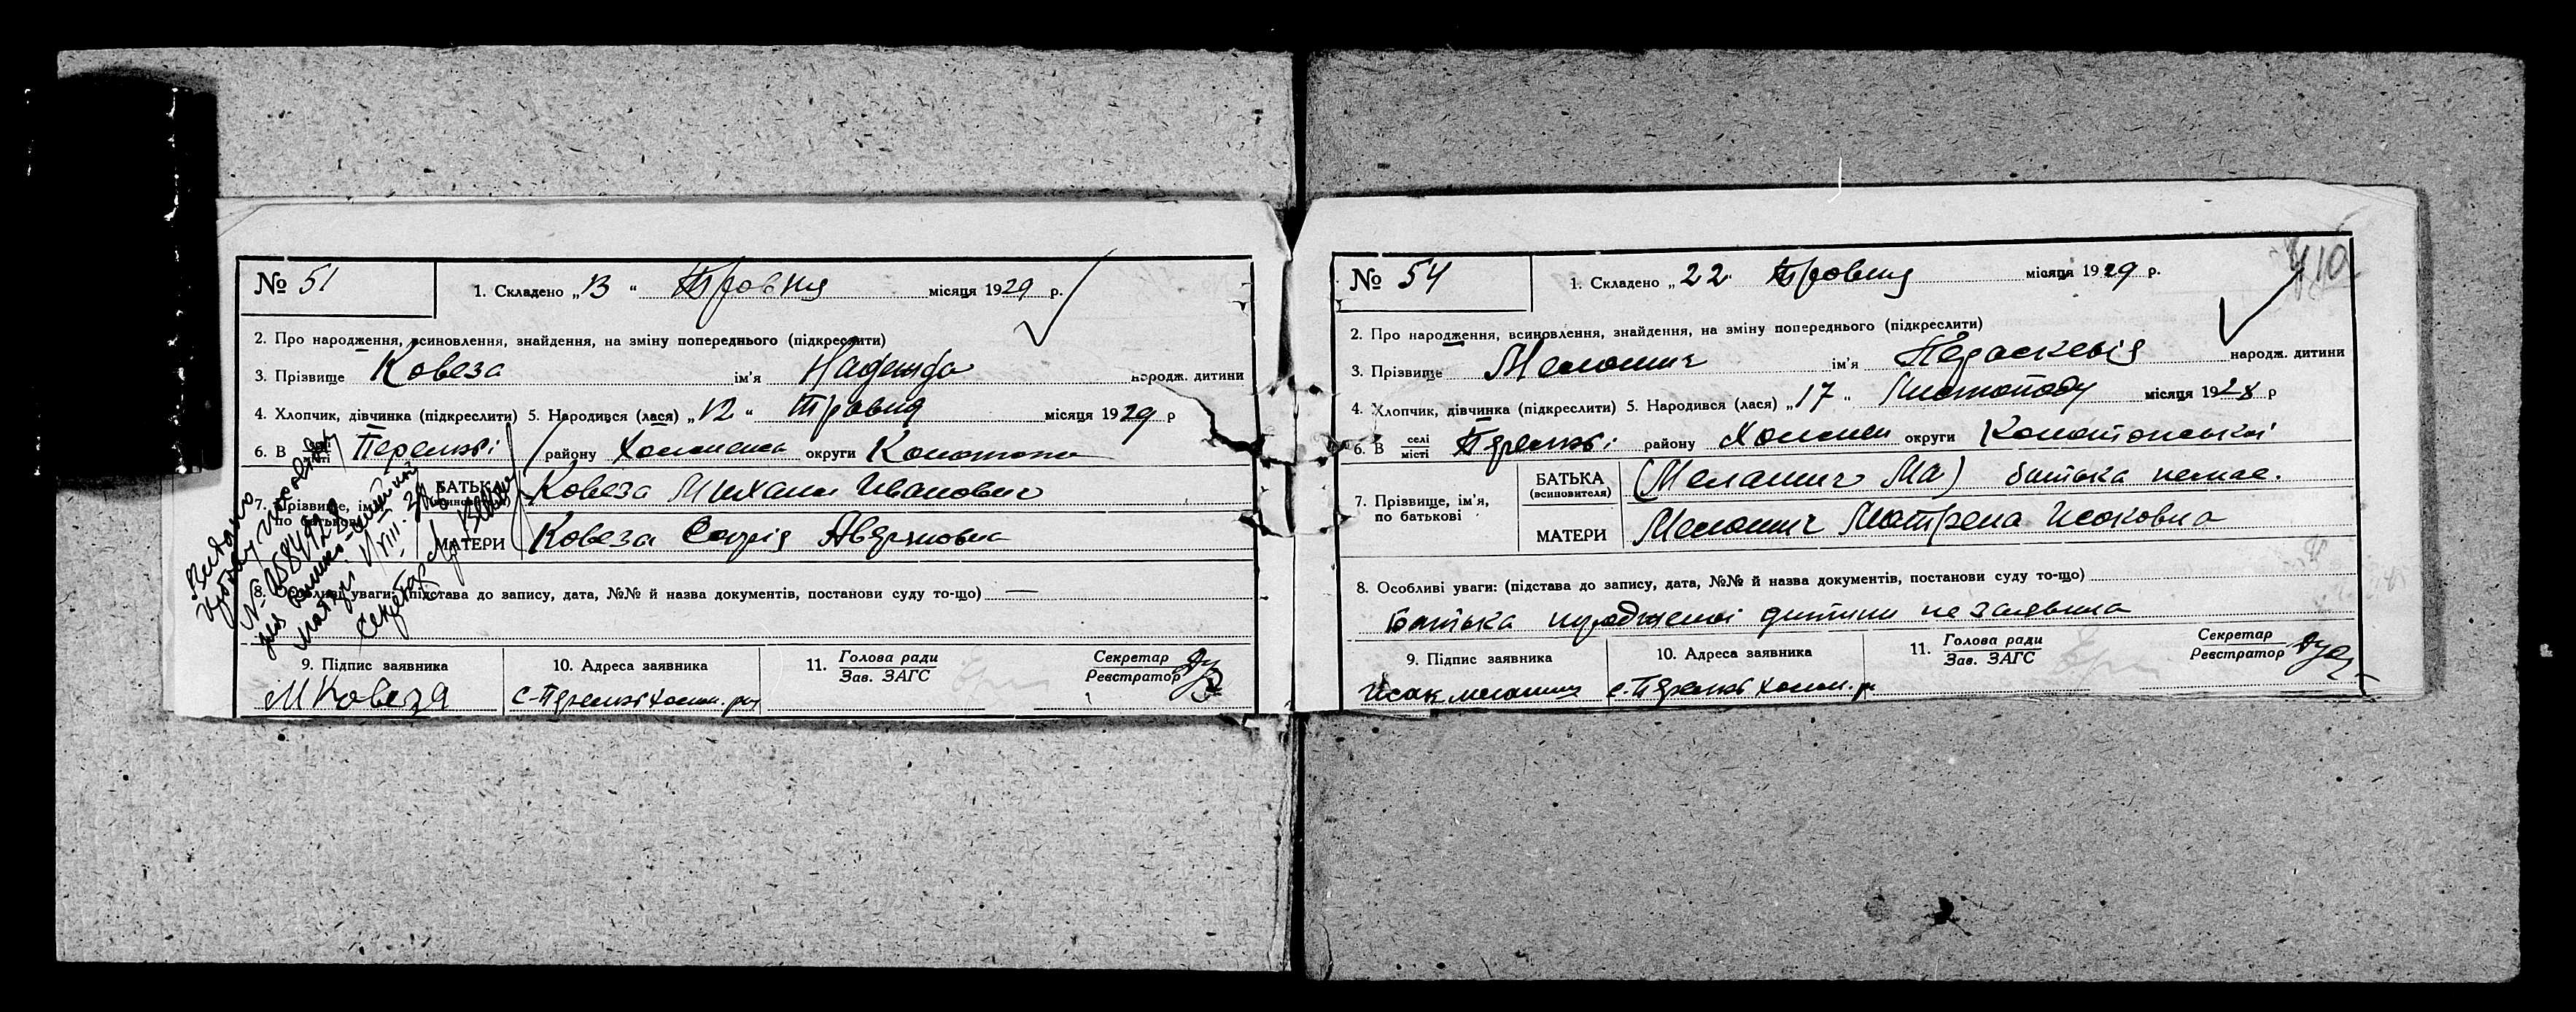 № 51
1. Складено „13“ Травня місяця 1929 р.
2. Про народження, всиновлення, знайдення, на зміну попереднього (підкреслити)
3. Прізвище Ковеза ім'я Надежда народж. дитини
4. Хлопчик, дівчинка (підкреслити) 5. Народився (лася) „12“ травня місяця 1929 р
6. В Перелюбі району Холменсь округи Конотопи
7. Прізвище, ім'я, по батькові
БАТЬКА Ковеза Михаил Иванович
МАТЕРИ Ковеза Софія Аверяновна
8. Особливі уваги: (підстава до запису, дата, №№ й назва документів, постанови суду то-що) —
9. Підпис заявника
М Ковеза
10. Адреса заявника
с-Перелюбі Холм. рай
11. Голова ради
Зав. ЗАГС
Секретар
Реєстратор
Видано
№
матері
Секретар
№ 54
1. Складено „22“ Травня місяця 1929 р.
2. Про народження, всиновлення, знайдення, на зміну попереднього (підкреслити)
3. Прізвище Меланич ім'я Параскевія народж. дитини
4. Хлопчик, дівчинка (підкреслити) 5. Народився (лася) „17“ Листопаду місяця 1928 р
6. В селі місті Перелюбі району Холмен округи Конотопської
7. Прізвище, ім'я, по батькові
БАТЬКА (всиновителя) (Меланич Ма) батька немае.
МАТЕРИ Меланич Матрена Исаковна
8. Особливі уваги: (підстава до запису, дата, №№ й назва документів, постанови суду то-що)
Батька нарожденої дитини не заявила
9. Підпис заявника
Исак меланич
10. Адреса заявника
с-Перелюбі Холм. р
11. Голова ради
Зав. ЗАГС
Секретар
Реєстратор